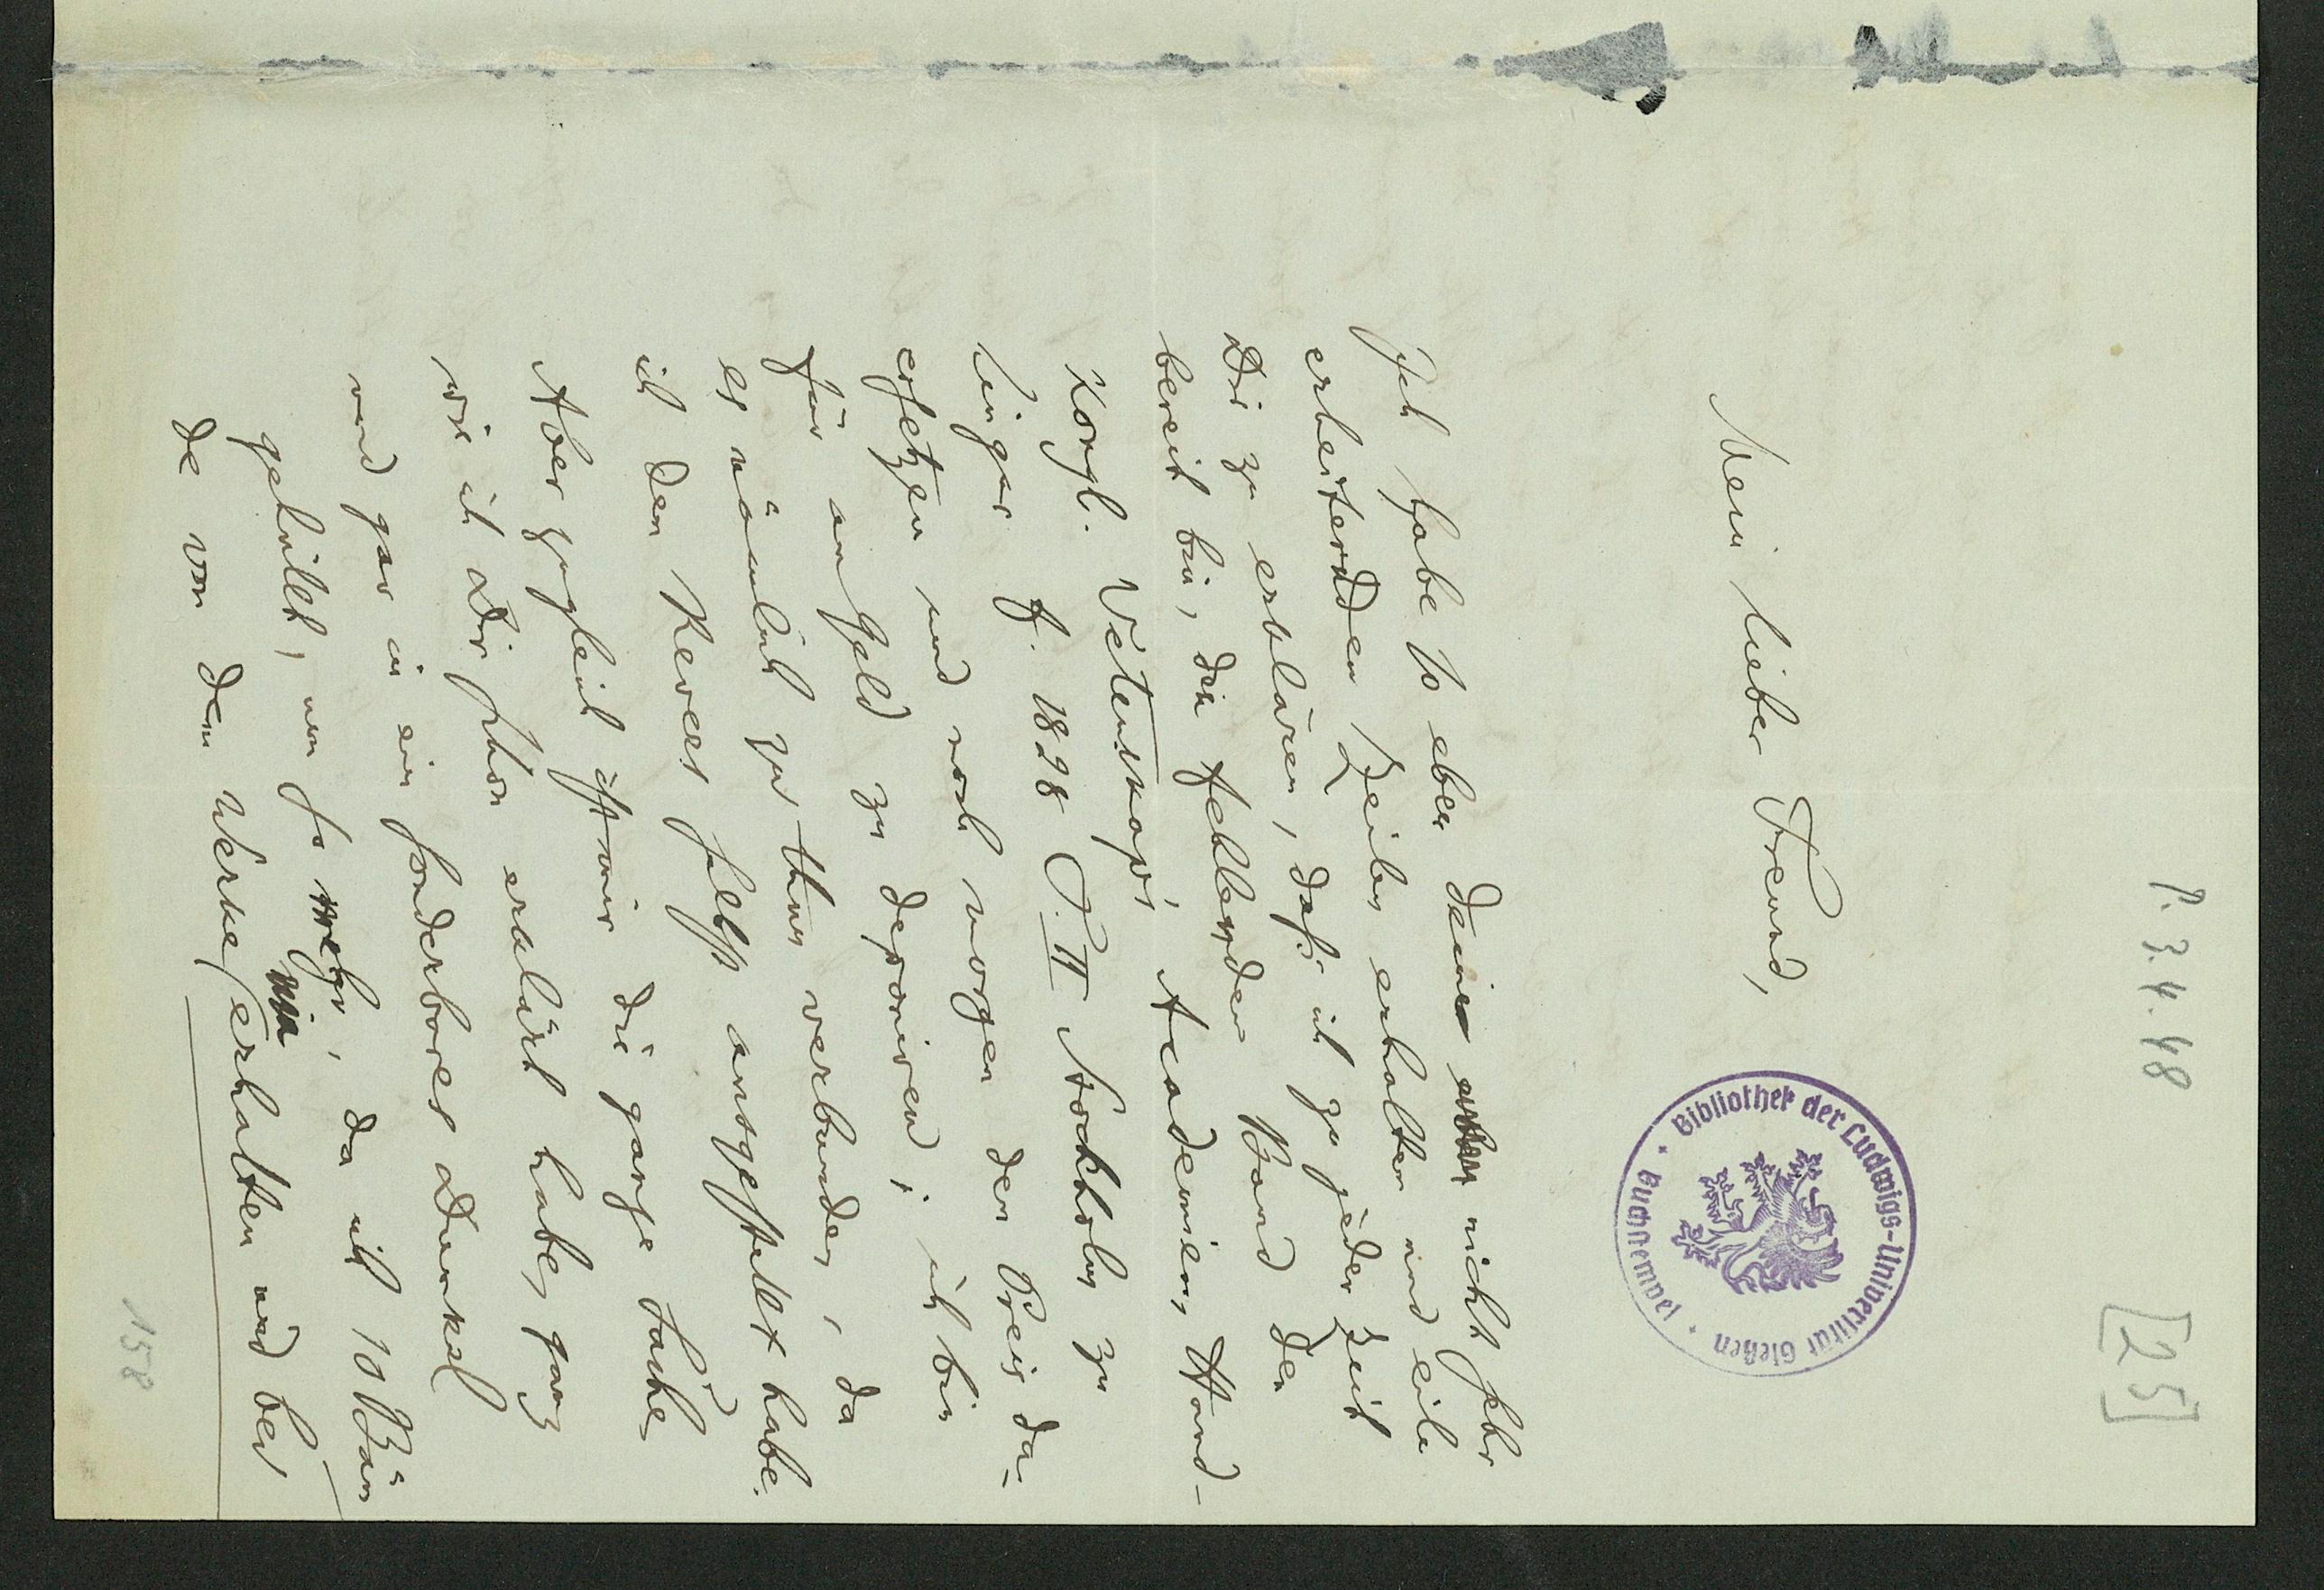 P. 3.4.48
[25]
Bibliothek der Ludwigs-Universität Gießen
Buchstempel
Mein lieber Freund,
Ich habe so eben deine nicht sehr
erheiternden Zeilen erhalten und eile
Dir zu erklären, daß ich zu jeder Zeit
bereit bin, den fehlenden Band der
Kongl. Vetenskaps Academiens Hand-
lingar f. 1828 P. II Stockholm zu
ersetzen und noch morgen den Preis da-
für an Geld zu deponiren; ich bin
es nämlich zu thun verbunden, da
ich den Revers selbst ausgestellt habe.
Aber zugleich ist mir die ganze Sache,
wie ich Dir schon erklärt habe, ganz
und gar in ein sonderbares Dunkel
gehüllt, um so mehr, da ich 10 Bän
de von dem Werke nie erhalten und bei
158